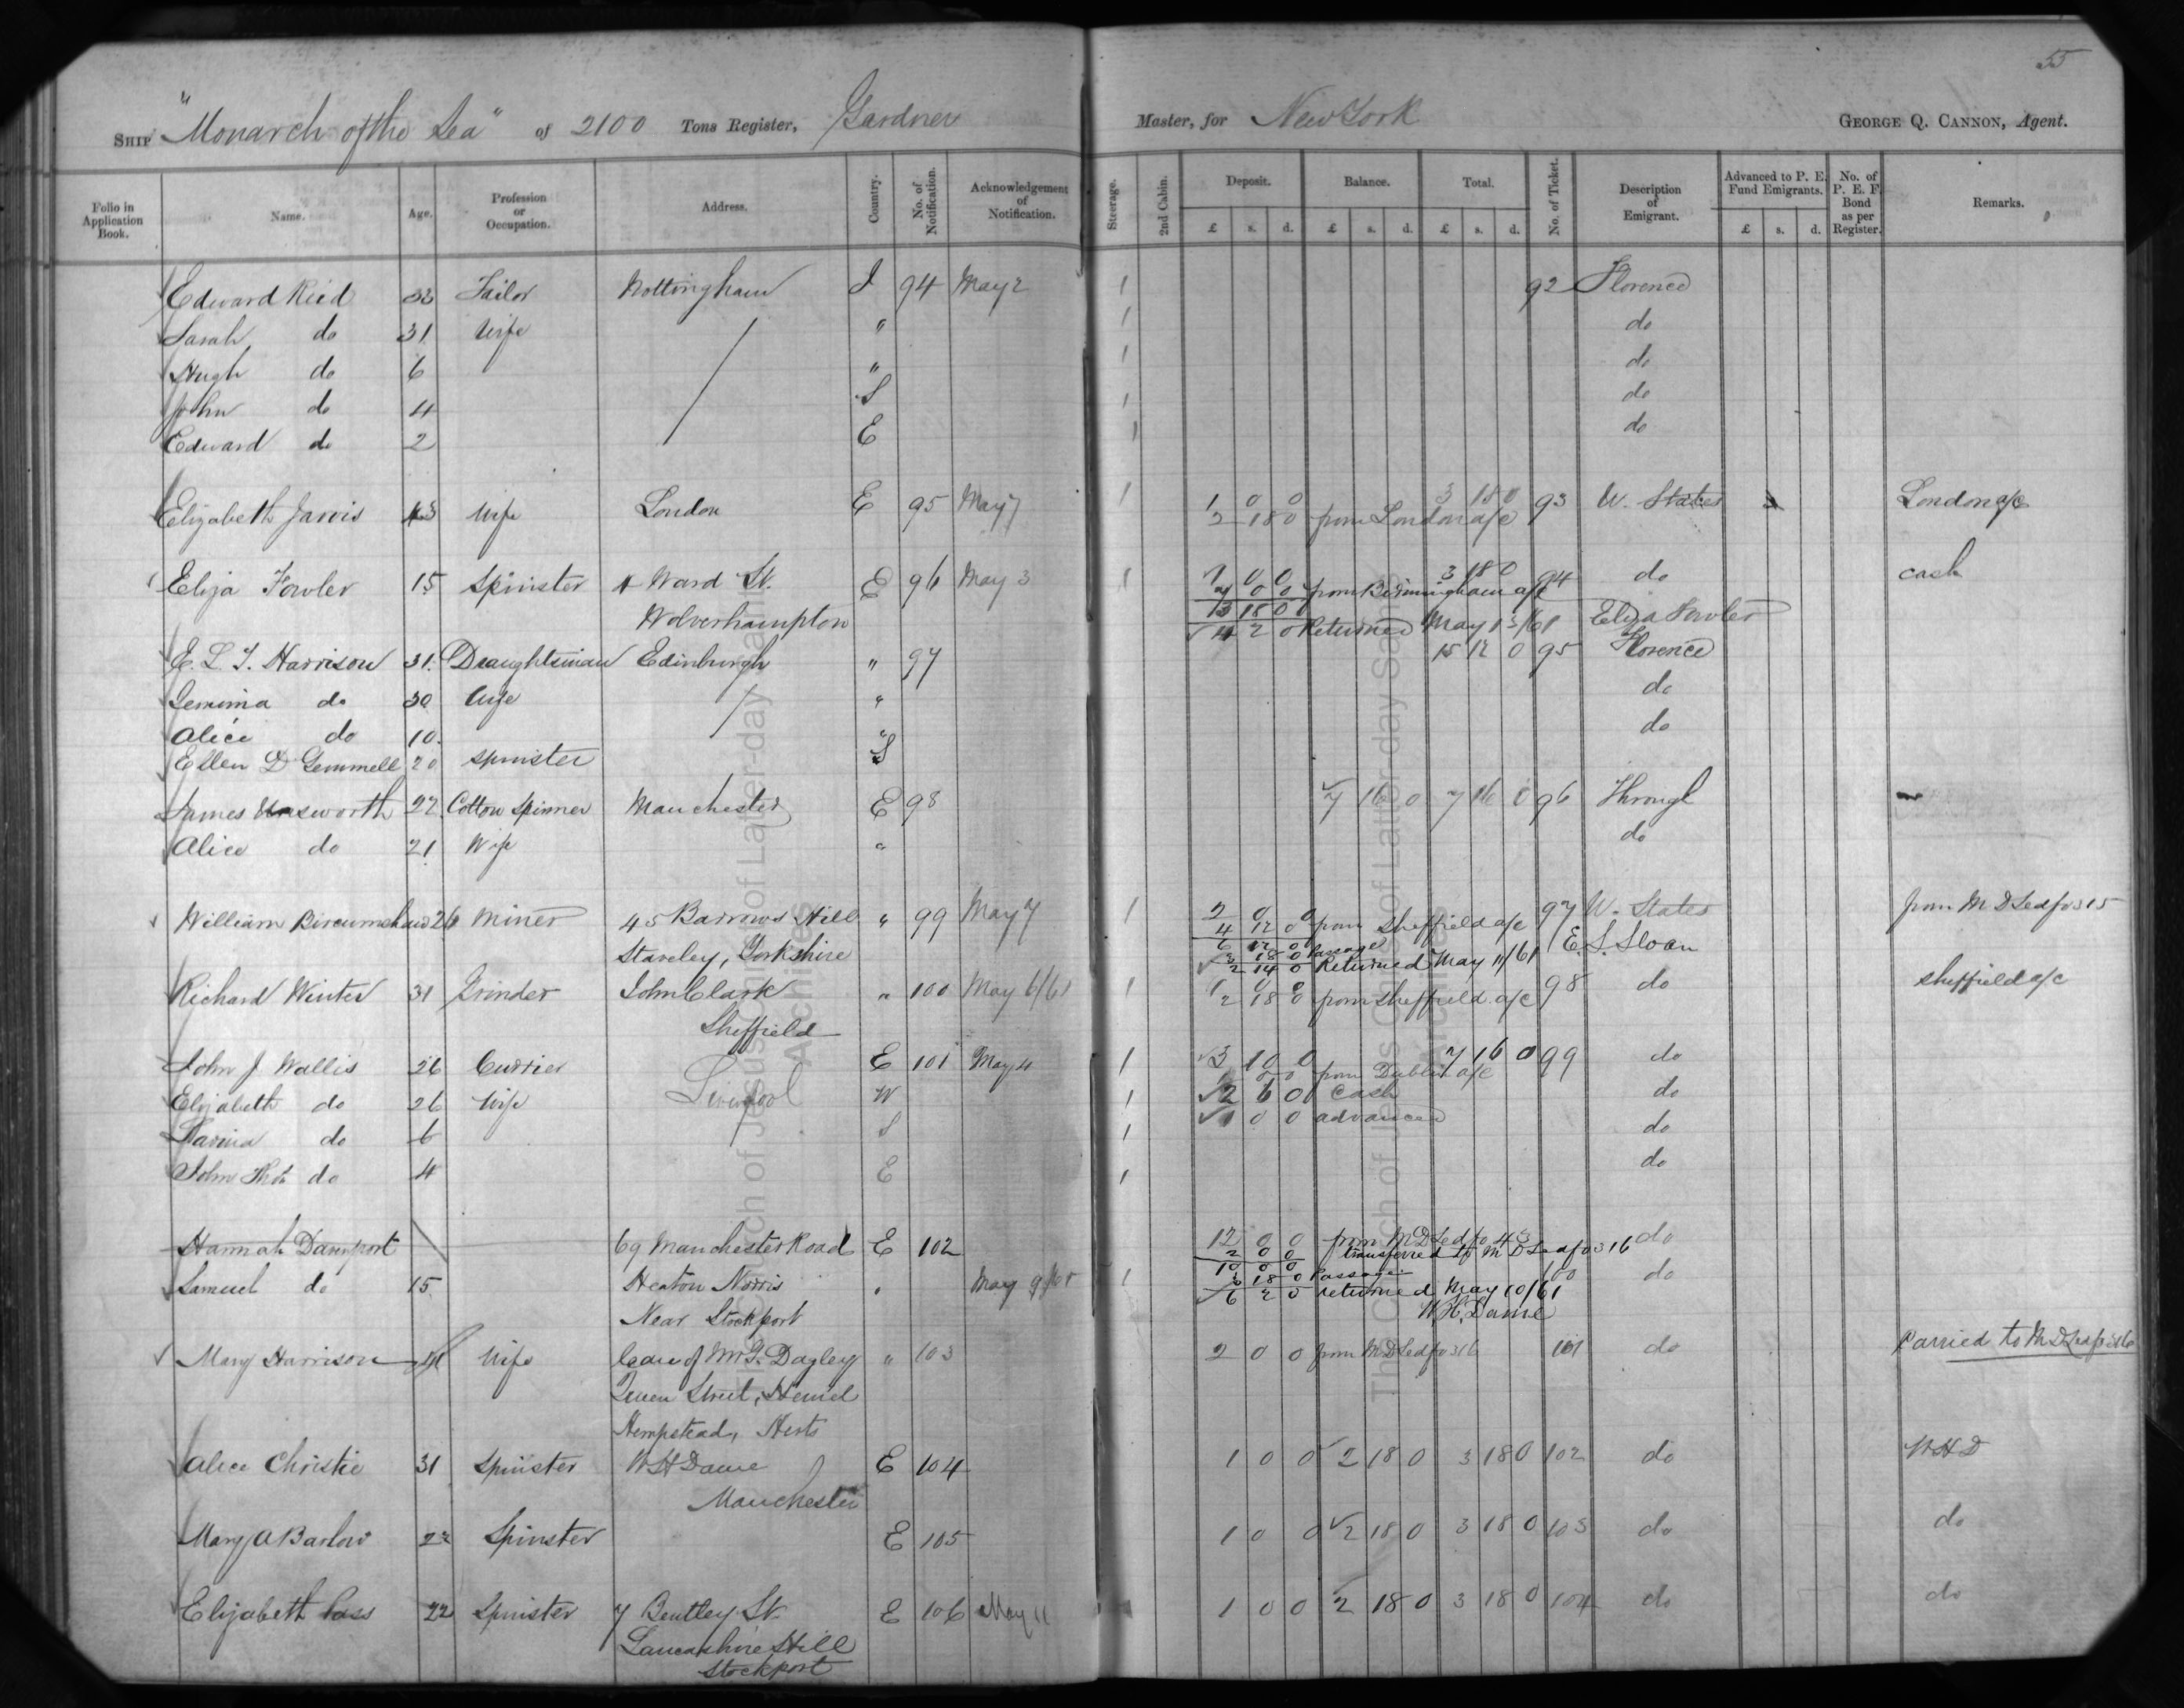 55
SHIP "Monarch of the Sea" of 2100 Tons Register, Gardner Master, for New York GEORGE Q. CANNON, Agent.
Folio in Application Book. Name. Age. Profession or Occupation. Address. Country. No. of Notification. Acknowledgement of Notification. Steerage. 2nd Cabin. Deposit. Balance. Total. No. of Ticket. Description of Emigrant. Advanced to P. E. Fund Emigrants. No. of P. E. F. Bond as per Register. Remarks.
£ s. d. £ s. d. £ s. d. £ s. d.
Edward Ried 33 Tailor Nottingham I 94 May 2 1 92 Florence
Sarah do 31 Wife " 1 do
Hugh do 6 " 1 do
John do 4 S 1 do
Edward do 2 E 1 do
Elizabeth Jarvis 43 Wife London E 95 May 7 1 1 0 0 3 18 0 93 U. States London a/c
2 18 0 from London a/c
Eliza Fowler 15 Spinster 4 Ward St. E 96 May 3 1 1 0 0 3 18 0 94 do cash
7 0 0 from Birmingham a/c
Wolverhampton 18 0
4 2 0 Returned May 13/61 Eliza Fowler
E. L. T. Harrison 31 Draughtsman Edinburgh " 97 15 12 0 95 Florence
Gemima do 30 Wife " do
Alice do 10 " do
Ellen D Gemmell 20 Spinster S
James Unsworth 22 Cotton Spinner Manchester E 98 7 16 0 7 16 0 96 Through
Alice do 21 Wife " do
William Bircumshaw 26 Miner 45 Barrows Hill " 99 May 7 1 2 0 0 97 U. States from M D Led fo 315
4 12 0 from Sheffield a/c
Staveley, Yorkshire 6 12 0
3 18 0 Passage
2 14 0 Returned May 11/61 E. L. Sloan
Richard Winter 31 Grinder John Clark " 100 May 6/61 1 1 0 0 98 do Sheffield a/c
2 18 0 from Sheffield a/c
Sheffield
John J Wallis 26 Currier Liverpool E 101 May 4 1 3 10 0 7 16 0 99 do
from Dublin a/c
Elizabeth do 26 Wife W 1 2 6 0 Cash do
do 6 S 1 1 0 0 advanced do
John do 4 E 1 do
Hannah Davenport 69 Manchester Road E 102 12 0 0 from M D Led fo 43 do
2 0 0 transferred to M D Led fo 316
10 0 0
Samuel do 15 Heaton Norris " May 9/61 1 3 18 0 Passage 100 do
6 2 0 returned May 10/61
Near Stockport W. H. Dame
Mary Harrison 41 Wife Care of Mr G. Dagley " 103 2 0 0 from M D Led fo 316 101 do Carried to M D Led fo 316
Queen Street, Hemel
Hempstead, Herts
Alice Christie 31 Spinster W H Dame E 104 1 0 0 2 18 0 3 18 0 102 do W H D
Manchester
Mary A Barlow 22 Spinster E 105 1 0 0 2 18 0 3 18 0 103 do do
Elizabeth 22 Spinster 7 Bentley St. E 106 May 11 1 0 0 2 18 0 3 18 0 104 do do
Lancashire Hill
Stockport